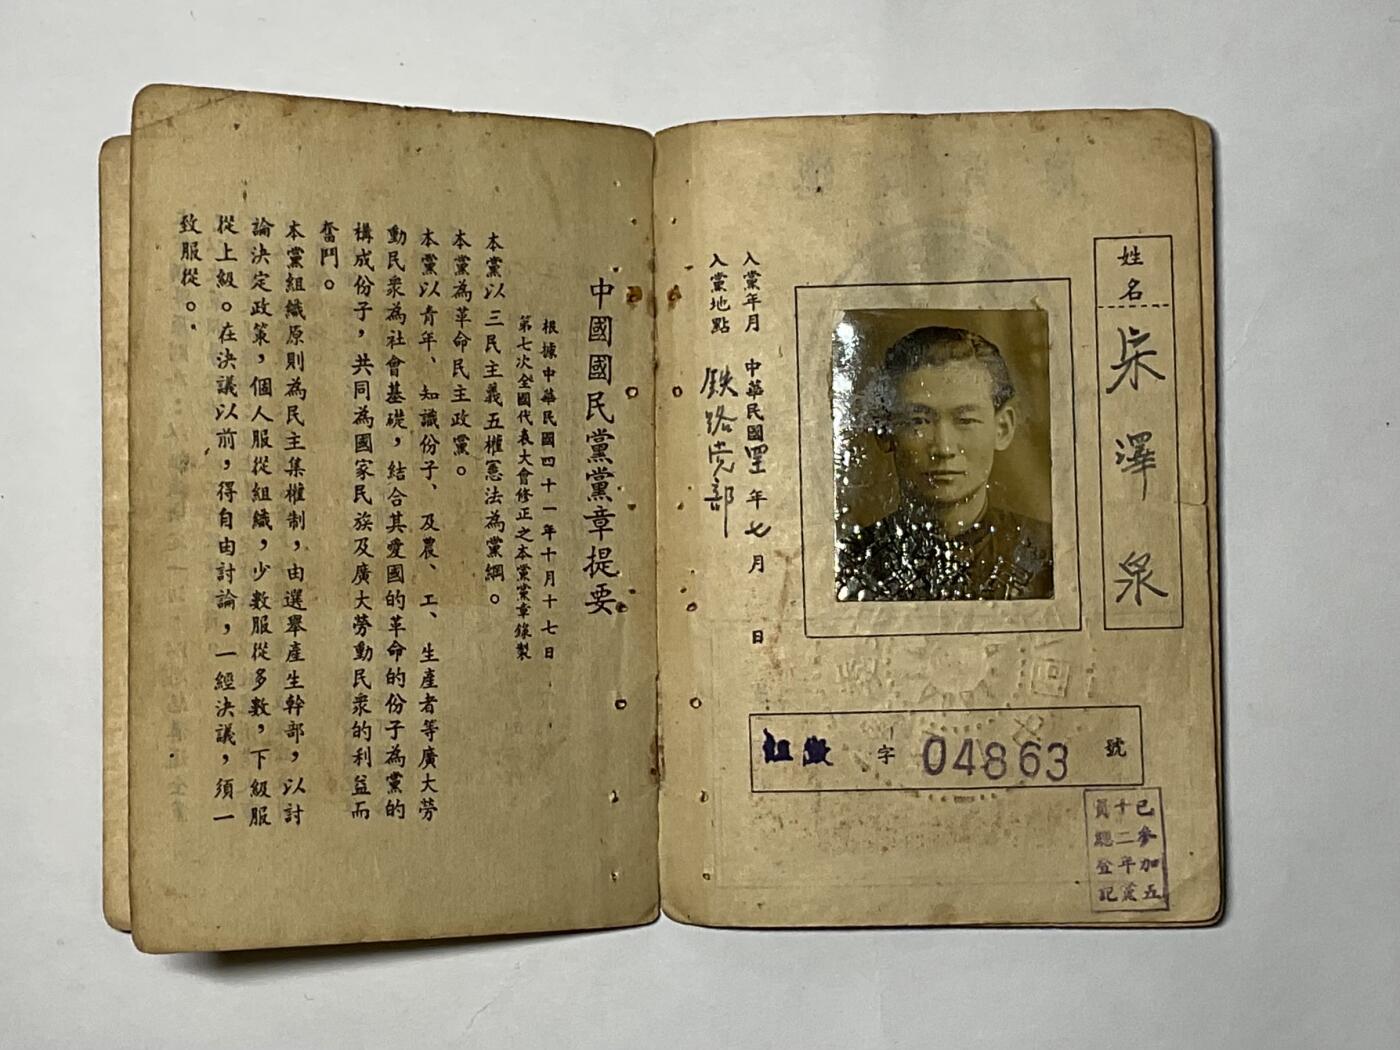 姓名 宋澤泉
入黨年月 中華民國 年七月 日
入黨地點 鉄路党部
字 04863 號
已參加五
十二年黨
員總登記
中國國民黨黨章提要
根據中華民國四十一年十月十七日
第七次全國代表大會修正之本黨黨章錄製
本黨以三民主義五權憲法為黨綱。
本黨為革命民主政黨。
本黨以青年、知識份子、及農、工、生產者等廣大勞
動民衆為社會基礎，結合其愛國的革命的份子為黨的
構成份子，共同為國家民族及廣大勞動民衆的利益而
奮鬥。
本黨組織原則為民主集權制，由選舉產生幹部，以討
論決定政策，個人服從組織，少數服從多數，下級服
從上級。在決議以前，得自由討論，一經決議，須一
致服從。